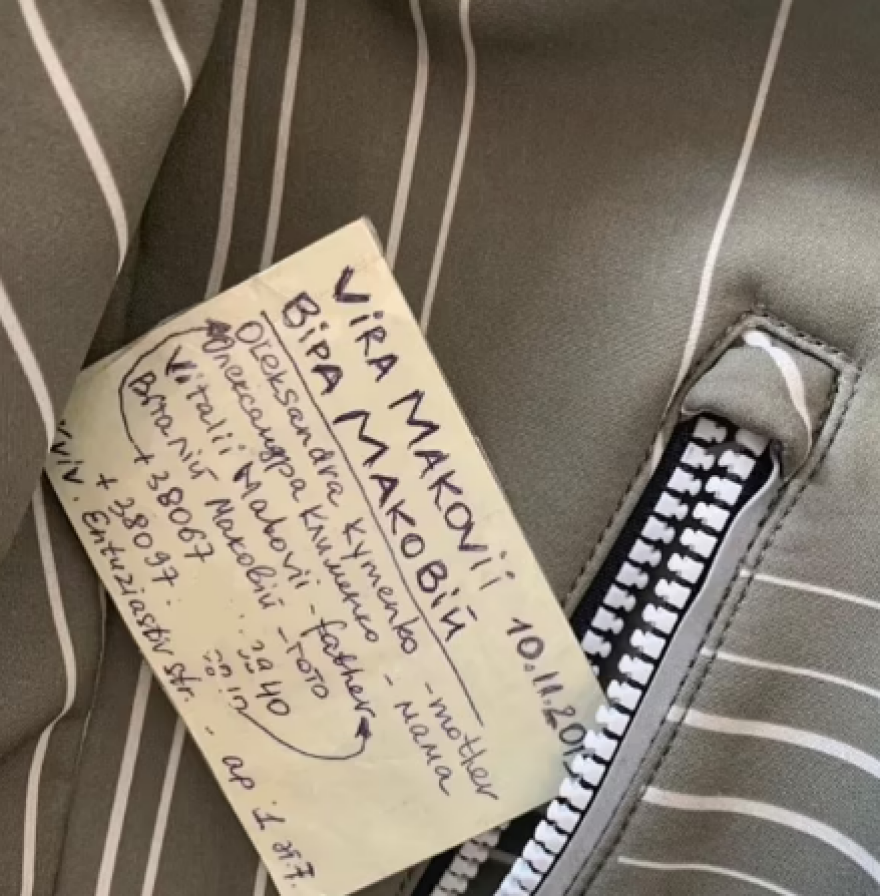 VIRA MAKOVII
ВІРА МАКОВІЙ 10.11.20
Oleksandra Kymenko - mother
Олександра Клименко - мама
Vitalii Makovii - father
Віталій Маковій - тото
+ 38067
+ 38097
Entuziastiv str. - ap. 1